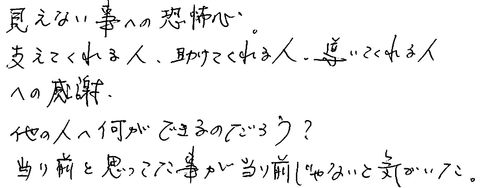 見えない事への恐怖心。
支えてくれる人、助けてくれる人、導いてくれる人
への感謝。
他の人へ何ができるのだろう？
当り前と思ってた事が当り前じゃないと気がいた。